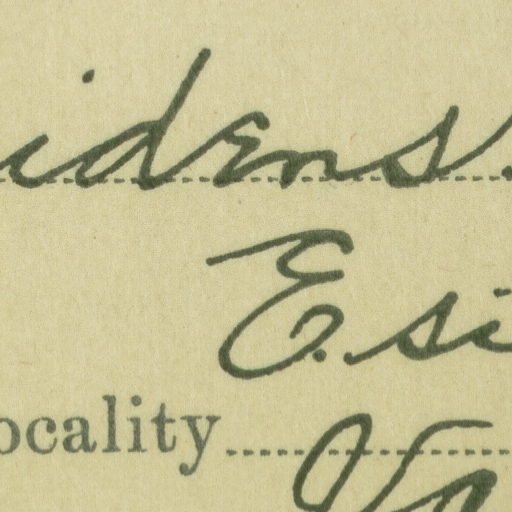 idens
E. si
ocality Va